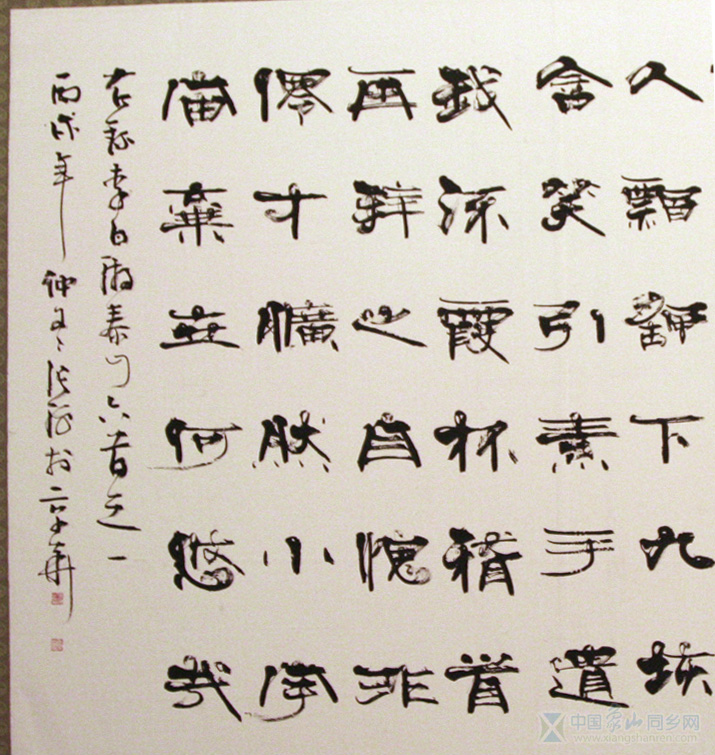 人飄颻下九垓
含笑引素手遺
我流霞杯稽首
再拜之自愧非
僊才曠然小宇
宙棄世何悠哉
右錄李白游泰山六首之一
丙戌年仲冬於京華
中国象山同乡网
www.xiangshanren.com